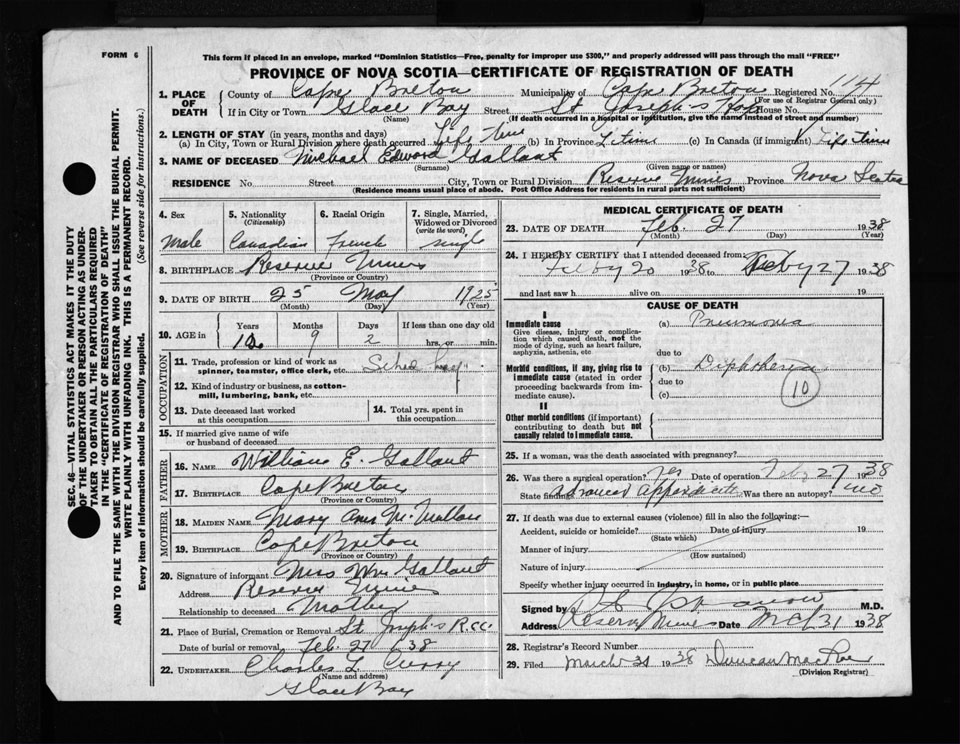 FORM 6
This form if placed in an envelope, marked "Dominion Statistics—Free, penalty for improper use $300," and properly addressed will pass through the mail "FREE"
PROVINCE OF NOVA SCOTIA—CERTIFICATE OF REGISTRATION OF DEATH
1. PLACE OF DEATH County of Cape Breton Municipality of Cape Breton Registered No. 114
(For use of Registrar General only)
If in City or Town Glace Bay Street St Joseph's Hosp House No.
(Name) (If death occurred in a hospital or institution, give the name instead of street and number)
2. LENGTH OF STAY (in years, months and days)
(a) In City, Town or Rural Division where death occurred Life Time (b) In Province L time (c) In Canada (if immigrant) Life Time
3. NAME OF DECEASED Michael Edward Gallant
(Surname) (Given name or names)
RESIDENCE No. Street City, Town or Rural Division Reserve Mines Province Nova Scotia
(Residence means usual place of abode. Post Office Address for residents in rural parts not sufficient)
SEC. 46—VITAL STATISTICS ACT MAKES IT THE DUTY
OF THE UNDERTAKER OR PERSON ACTING AS UNDER-
TAKER TO OBTAIN ALL THE PARTICULARS REQUIRED
IN THE "CERTIFICATE OF REGISTRATION OF DEATH"
AND TO FILE THE SAME WITH THE DIVISION REGISTRAR WHO SHALL ISSUE THE BURIAL PERMIT.
WRITE PLAINLY WITH UNFADING INK. THIS IS A PERMANENT RECORD.
Every item of information should be carefully supplied. (See reverse side for instructions.)
4. Sex Male
5. Nationality (Citizenship) Canadian
6. Racial Origin French
7. Single, Married, Widowed or Divorced (write the word) single
8. BIRTHPLACE Reserve Mines
(Province or Country)
9. DATE OF BIRTH 25 May 1925
(Month) (Day) (Year)
10. AGE in Years Months Days If less than one day old
9 2 hrs. or min.
OCCUPATION
11. Trade, profession or kind of work as spinner, teamster, office clerk, etc.
12. Kind of industry or business, as cotton-mill, lumbering, bank, etc.
13. Date deceased last worked at this occupation
14. Total yrs. spent in this occupation
15. If married give name of wife or husband of deceased
FATHER
16. NAME William E. Gallant
17. BIRTHPLACE Cape Breton
(Province or Country)
MOTHER
18. MAIDEN NAME Mary Ann
19. BIRTHPLACE Cape Breton
(Province or Country)
20. Signature of informant Mrs Wm Gallant
Address Reserve Mines
Relationship to deceased Mother
21. Place of Burial, Cremation or Removal St Joseph's R.C.C.
Date of burial or removal Feb. 27 38
22. UNDERTAKER Charles L Curry
(Name and address)
Glace Bay
MEDICAL CERTIFICATE OF DEATH
23. DATE OF DEATH Feb. 27 1938
(Month) (Day) (Year)
24. I HEREBY CERTIFY that I attended deceased from:
Feby 20 1938 to Feby 27 1938
and last saw h alive on 19
CAUSE OF DEATH
I
Immediate cause (a) Pneumonia
Give disease, injury or complication which caused death, not the mode of dying, such as heart failure, asphyxia, asthenia, etc
due to
Morbid conditions, if any, giving rise to immediate cause (stated in order proceeding backwards from immediate cause).
(b) Diphtheria
due to
(c)
10
II
Other morbid conditions (if important) contributing to death but not causally related to immediate cause.
25. If a woman, was the death associated with pregnancy?
26. Was there a surgical operation? Yes Date of operation Feby 27 1938
State findings Was there an autopsy? no
27. If death was due to external causes (violence) fill in also the following:—
Accident, suicide or homicide? Date of injury 19
(State which)
Manner of injury
(How sustained)
Nature of injury
Specify whether injury occurred in industry, in home, or in public place
Signed by M.D.
Address Reserve Mines Date Mch 31 1938
28. Registrar's Record Number
29. Filed March 31 1938 Duncan
(Division Registrar)